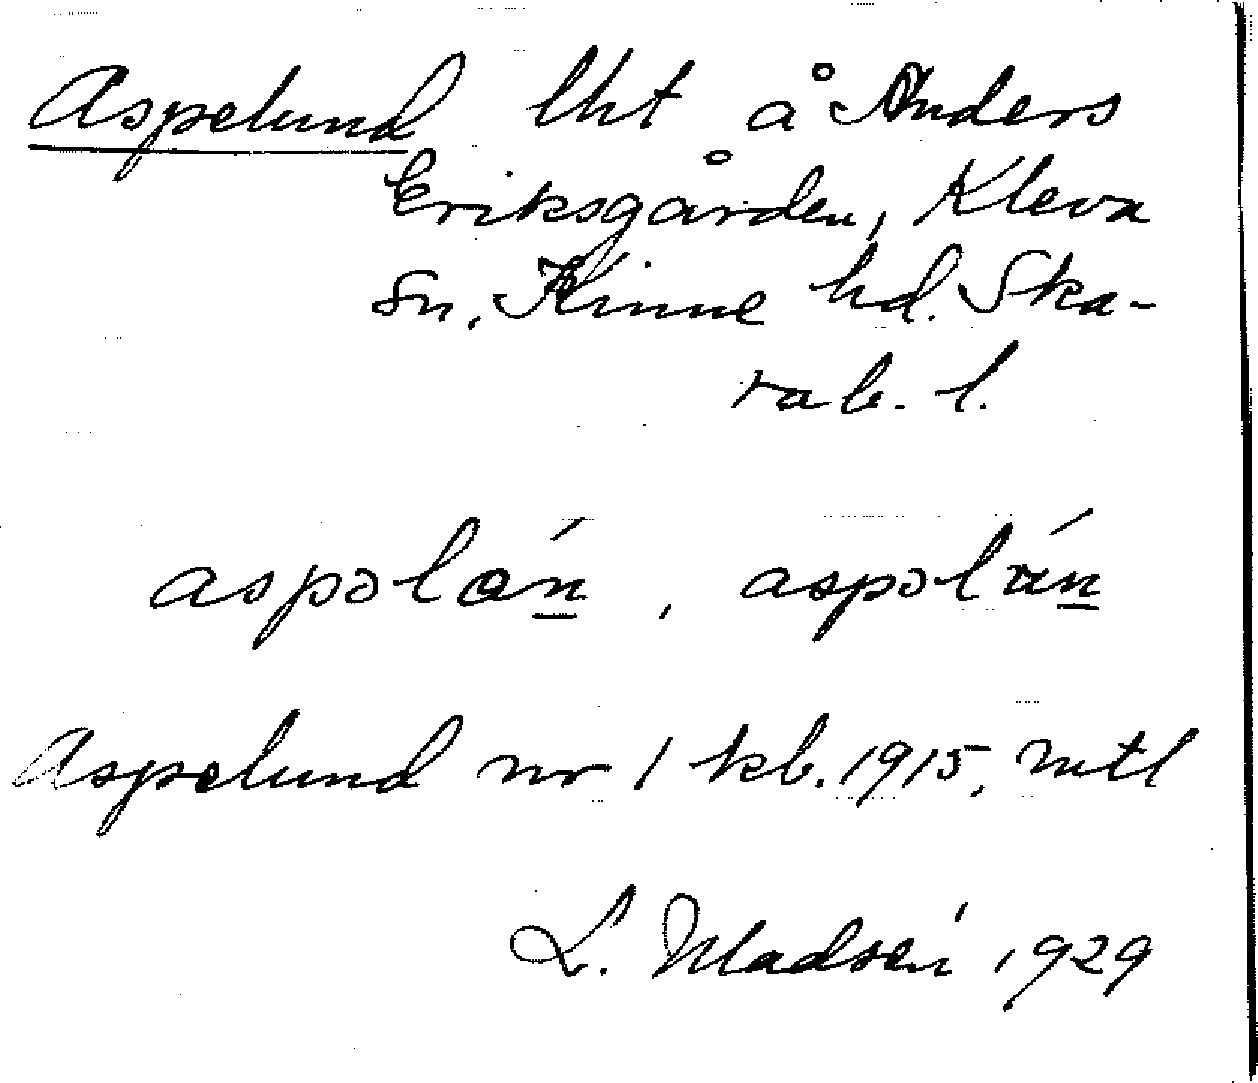 Aspelund lht å Anders
Eriksgården, Kleva
sn, Kinne hd. Ska-
rab. l.
aspəlán, aspəlún
Aspelund nr 1 kb. 1915, mtl
L. Madsén 1929